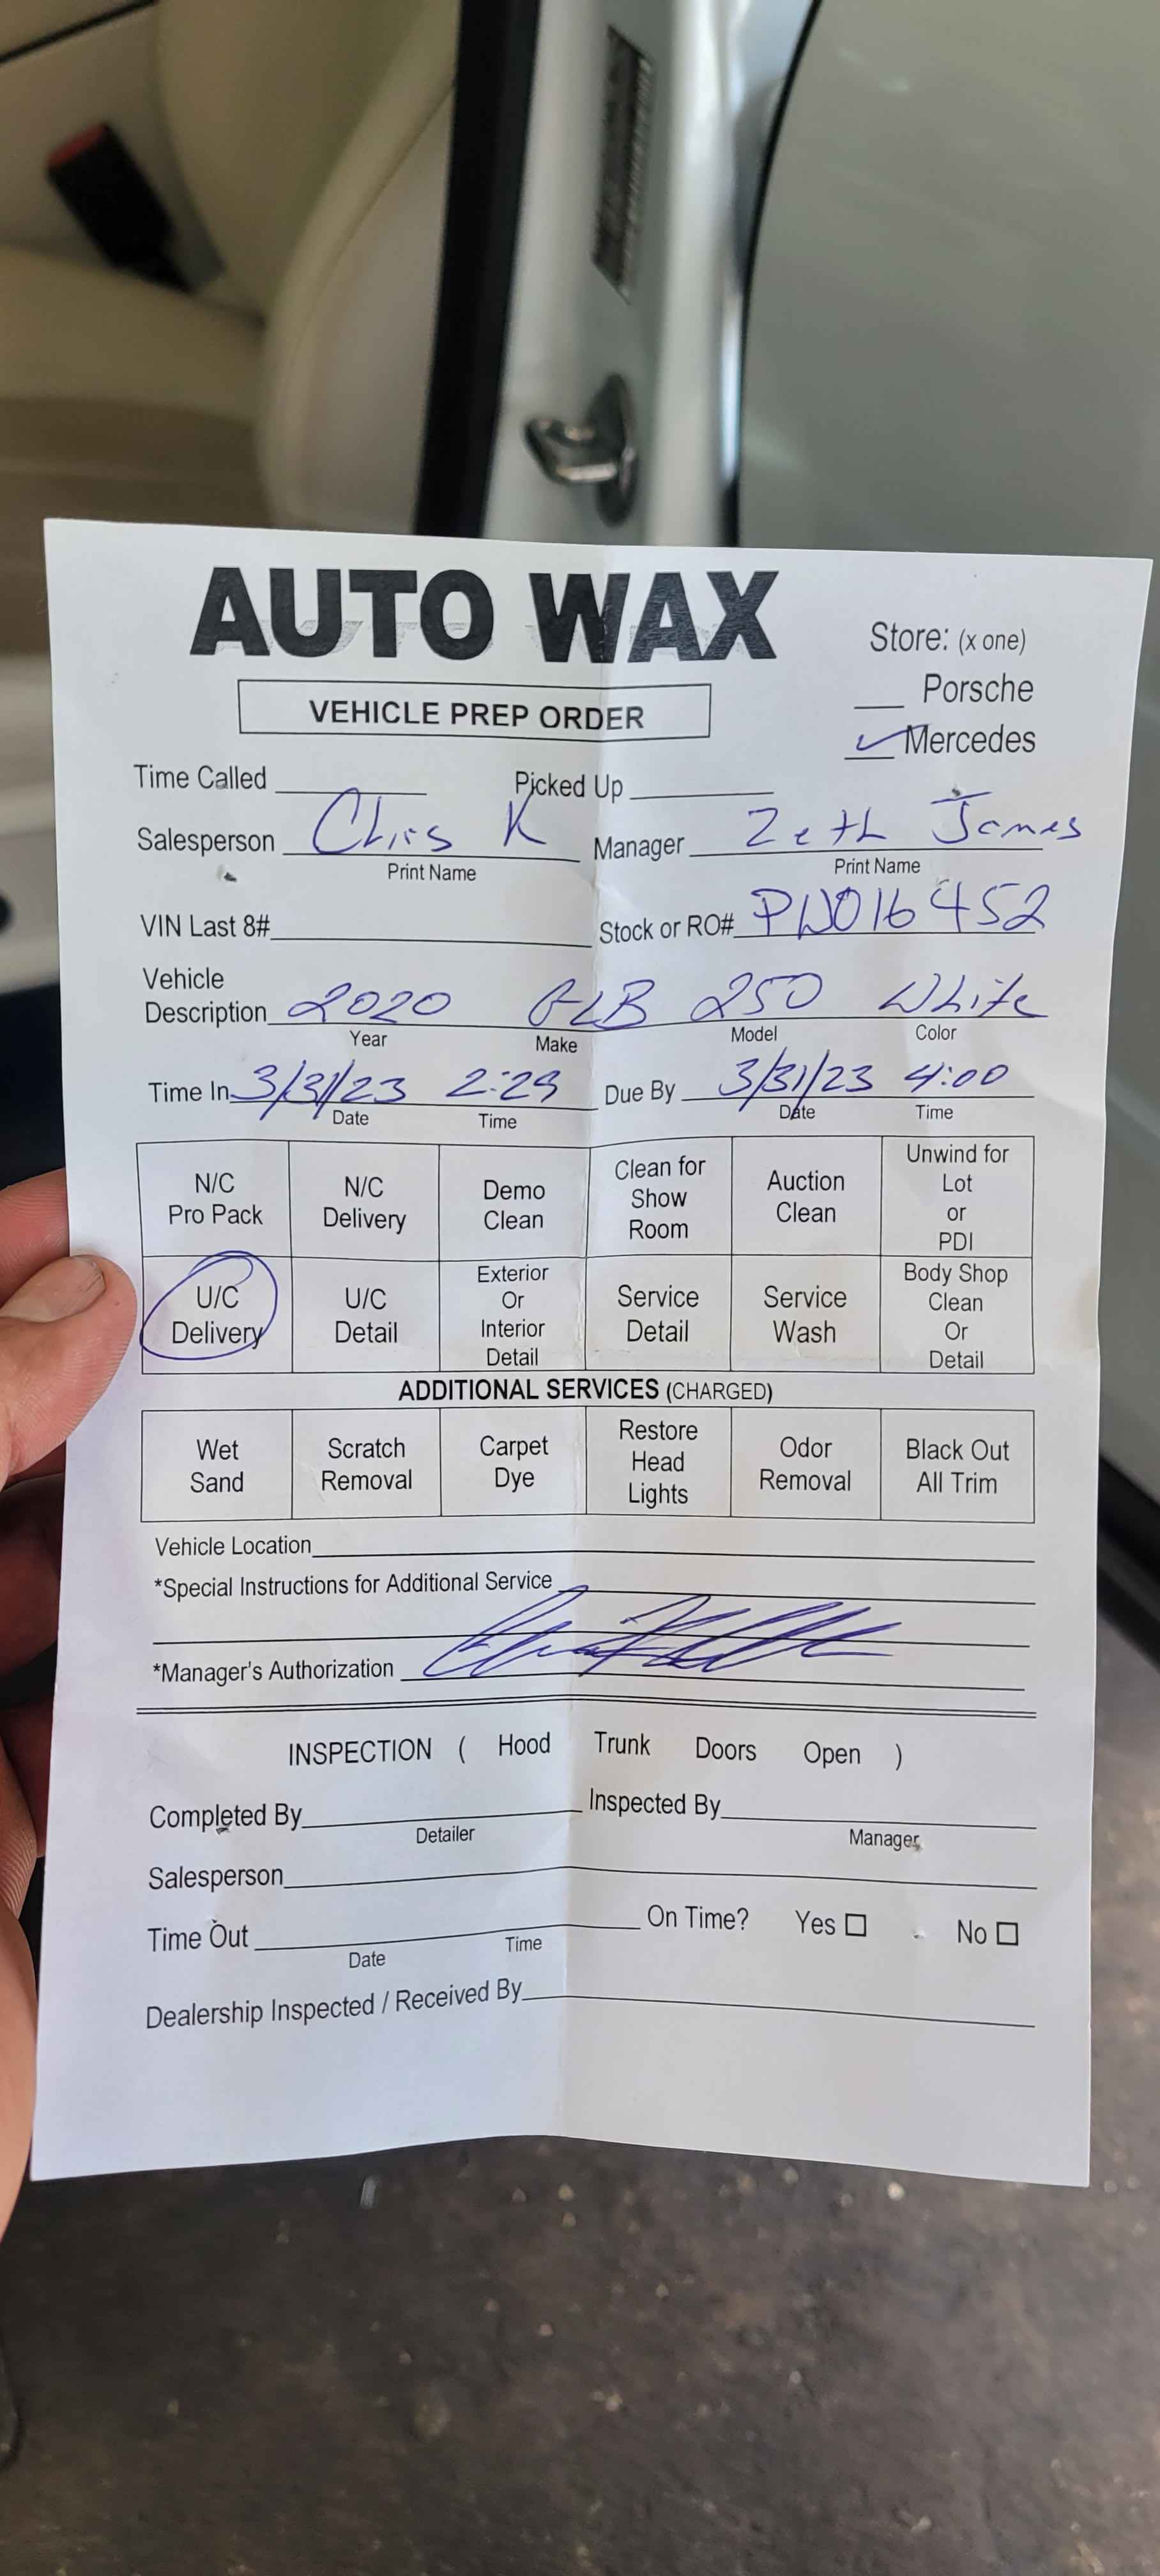 AUTO WAX
VEHICLE PREP ORDER
Store: (x one)
Porsche
Mercedes
Time Called Picked Up
Salesperson Chris K Manager Zeth James
Print Name Print Name
VIN Last 8# Stock or RO# PW016452
Vehicle
Description 2020 GLB 250 White
Year Make Model Color
Time In 3/31/23 2:29 Due By 3/31/23 4:00
Date Time Date Time
N/C Pro Pack
N/C Delivery
Demo Clean
Clean for Show Room
Auction Clean
Unwind for Lot or PDI
U/C Delivery
U/C Detail
Exterior Or Interior Detail
Service Detail
Service Wash
Body Shop Clean Or Detail
ADDITIONAL SERVICES (CHARGED)
Wet Sand
Scratch Removal
Carpet Dye
Restore Head Lights
Odor Removal
Black Out All Trim
Vehicle Location
*Special Instructions for Additional Service
*Manager's Authorization
INSPECTION ( Hood Trunk Doors Open )
Completed By Inspected By
Detailer Manager
Salesperson
Time Out On Time? Yes No
Date Time
Dealership Inspected / Received By